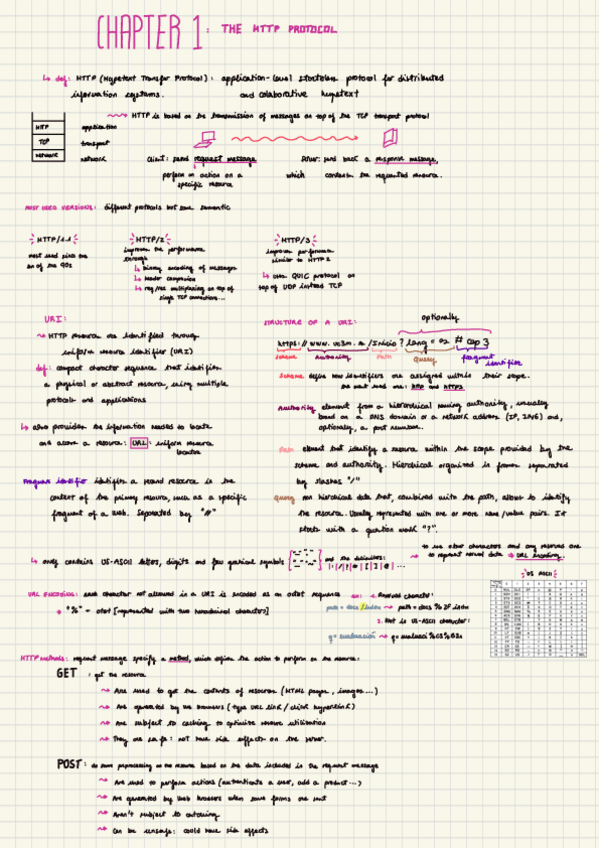 CHAPTER 1: THE HTTP PROTOCOL
↳ def: HTTP (Hypertext Transfer Protocol): application-level stateless protocol for distributed
information systems. and collaborative hypertext
HTTP is based on the transmission of messages on top of the TCP transport protocol
HTTP application
TCP transport
NETWORK network
Client: send request message
perform an action on a
specific resource
Server: send back a response message,
which contains the requested resource.
MOST USED VERSIONS: different protocols but same semantic
HTTP/1.1
most used since the
end of the 90s
HTTP/2
improves the performance
through
↳ binary encoding of messages
↳ header compression
↳ req/res multiplexing on top of
single TCP connections...
HTTP/3
improves performance
similar to HTTP2
↳ uses QUIC protocol on
top of UDP instead TCP
URI:
HTTP resources are identified through
uniform resource identifier (URI)
def: compact character sequence that identifies
a physical or abstract resource, using multiple
protocols and applications
↳ also provides the information needed to locate
and access a resource: URL: uniform resource
locator
Fragment identifier identifies a second resource in the
context of the primary resource, such as a specific
fragment of a web. Separated by "#"
STRUCTURE OF A URI:
optionally
https://www.uc3m.es/Inicio?lang=es#cap3
scheme Authority Path Query fragment
identifier
Scheme define how identifiers are assigned within their scope.
the most used are: http and https
Authority element from a hierarchical naming authority, usually
based on a DNS domain or a network address (IP, IPv6) and,
optionally, a port number.
Path element that identify a resource within the scope provided by the
scheme and authority. Hierarchical organized in frames separated
by slashes "/"
Query non hierarchical data that, combined with the path, allows to identify
the resource. Usually represented with one or more name/value pairs. It
starts with a question mark "?".
↳ only contains US-ASCII letters, digits and few graphical symbols
and the delimiters:
to use other characters and any reserved one
to represent normal data → URL encoding.
US ASCII
URL ENCODING: each character not allowed in a URI is encoded as an octet sequence
"%" + octet [represented with two hexadecimal characters]
1. Reserved character:
path = docs/index → path = docs%2Findex
2. Not in US-ASCII character:
q= evaluación → q= evaluaci%C3%B3n
HTTP methods: request message specify a method, which define the action to perform on the resource:
GET: get the resource
Are used to get the contents of resources (HTML pages, images...)
Are generated by the browsers (type URL link / click hyperlink)
Are subject to caching to optimize resource utilization
They are safe: not have side effects on the server.
POST: do some preprocessing on the resource based on the data included in the request message
Are used to perform actions (authenticate a user, add a product...)
Are generated by Web browsers when some forms are sent
Aren't subject to catching
Can be unsafe: could have side effects